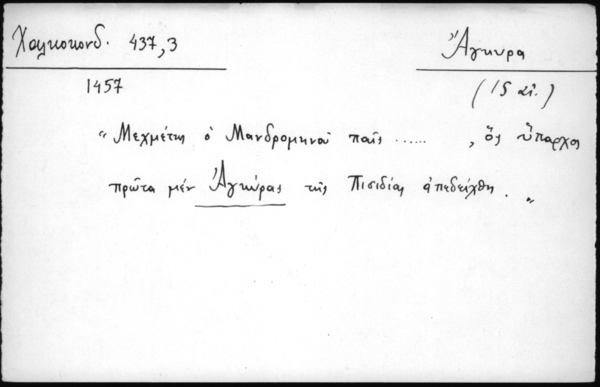 Χαλκοκονδ. 437,3
Ἄγκυρα
1457
(15 αἰ.)
"Μεχμέτης ὁ Μανδρομηνοῦ παῖς ......, ὅς ὕπαρχος
πρῶτα μέν Ἀγκύρας τῆς Πισιδίας ἀπεδείχθη. "